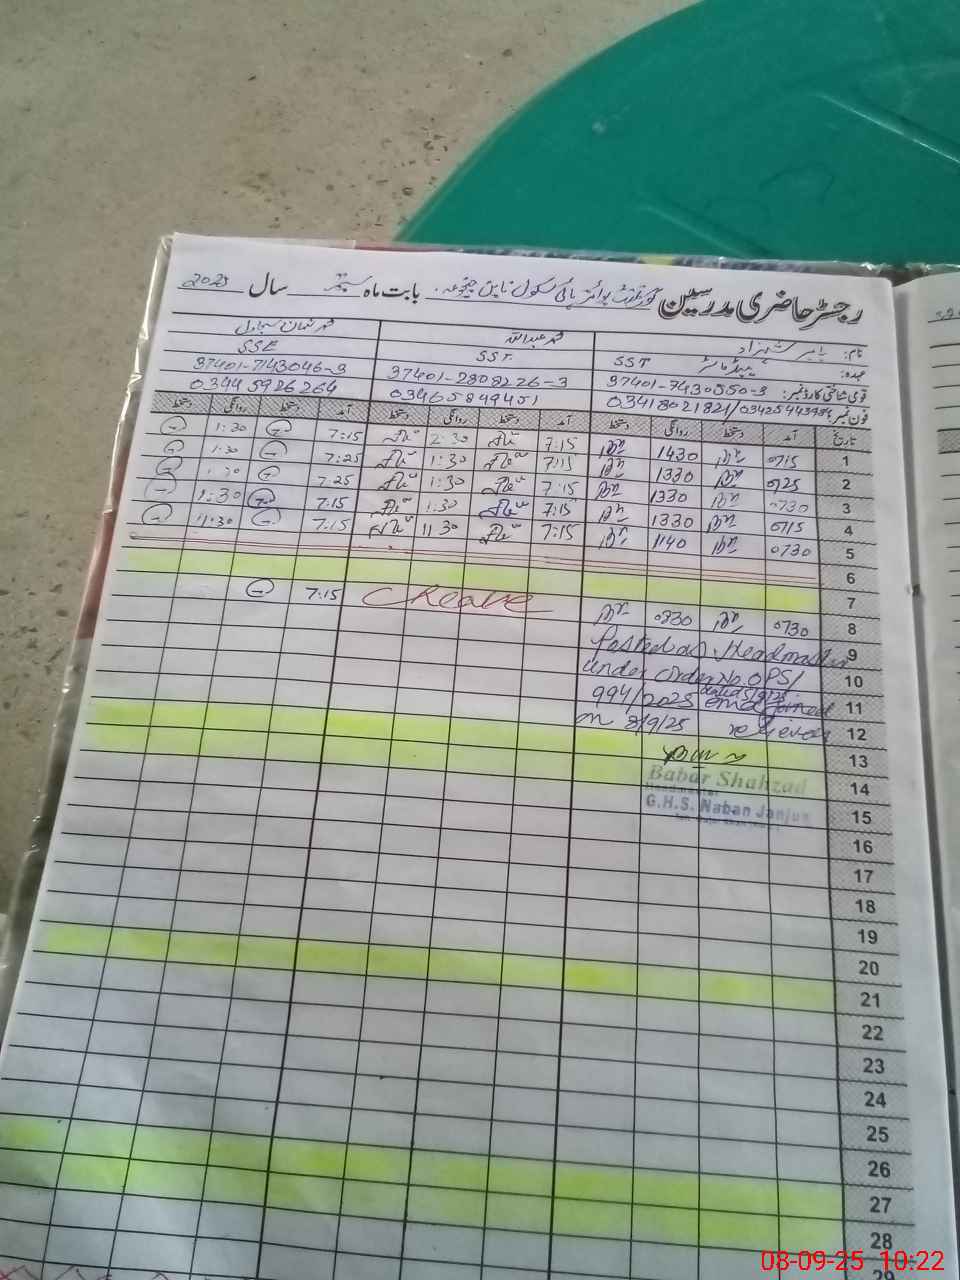 رجسٹر حاضری مدرسین گورنمنٹ بوائز ہائی سکول نابن جنجوعہ بابت ماہ ستمبر سال 2025
نام: بابر شہزاد محمد عبداللہ
عہدہ: ہیڈ ماسٹر SST SST SSE
قومی شناختی کارڈ نمبر: 37401-7430550-3 37401-2808226-3 37401-7143046-3
فون نمبر: 03418021821/03425443984 03465849451 03445926264
تاریخ آمد دستخط روانگی دستخط آمد دستخط روانگی دستخط آمد دستخط روانگی دستخط
1 0715 1430 7:15 2:30 7:15 1:30
2 0725 1330 7:15 1:30 7:25 1:30
3 0730 1330 7:15 1:30 7:25 1:30
4 0715 1330 7:15 1:30 7:15 1:30
5 0730 1140 7:15 11:30 7:15 11:30
6
7
8 0730 0830 C Leave 7:15
9 Posted as Headmaster
10 under order No. OPS/
11 994/2025 dated 5/9/25 and joined
12 on 8/9/25 relieved
13
14 Babar Shahzad
Headmaster
15 G.H.S. Naban Janjua
16
17
18
19
20
21
22
23
24
25
26
27
28
29
08-09-25 10:22